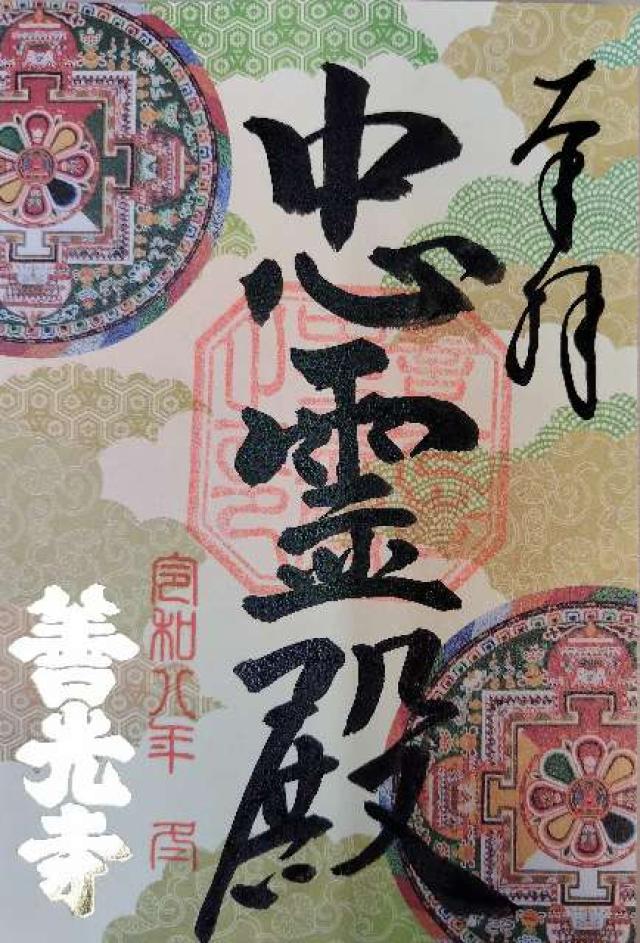 奉拝
忠霊殿
令和八年 月
善光寺